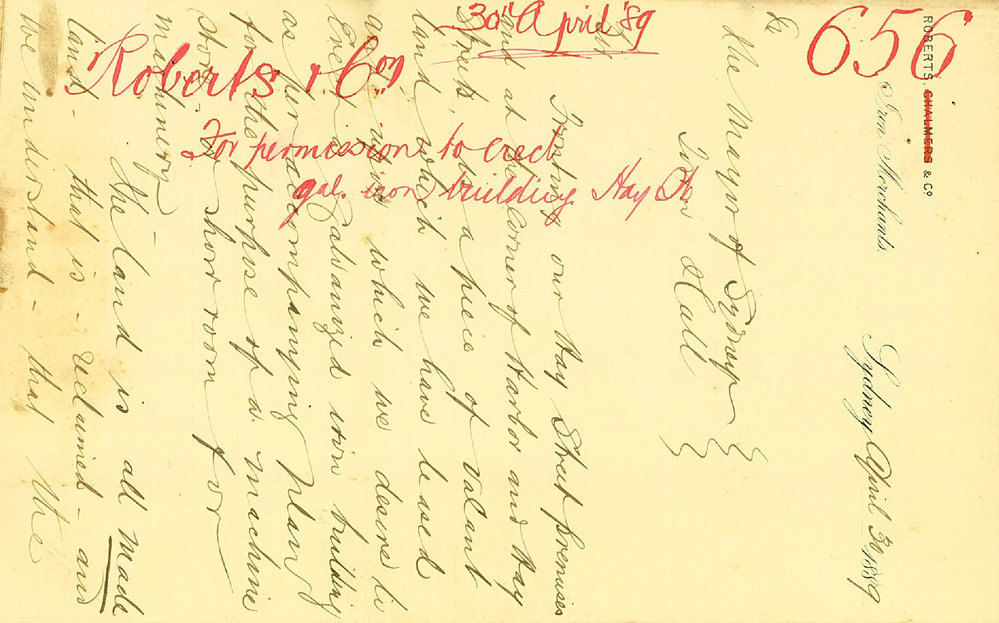 656
30th April '89
Roberts & Coy
For permission to erect
gal. iron building Hay St
ROBERTS, CHALMERS & Co.
Iron Merchants.
Sydney April 30 1889
To
The Mayor of Sydney
Town Hall
Sir
Fronting our Hay Street premises
and at the corner of Harbor and Hay
Streets, is a piece of vacant
land which we have leased
and upon which we desire to
Erect a Galvanized iron building
as per accompanying plan
for the purpose of a machine
store & show room for
machinery
The land is all made
land - that is - reclaimed - and
we understand - that the